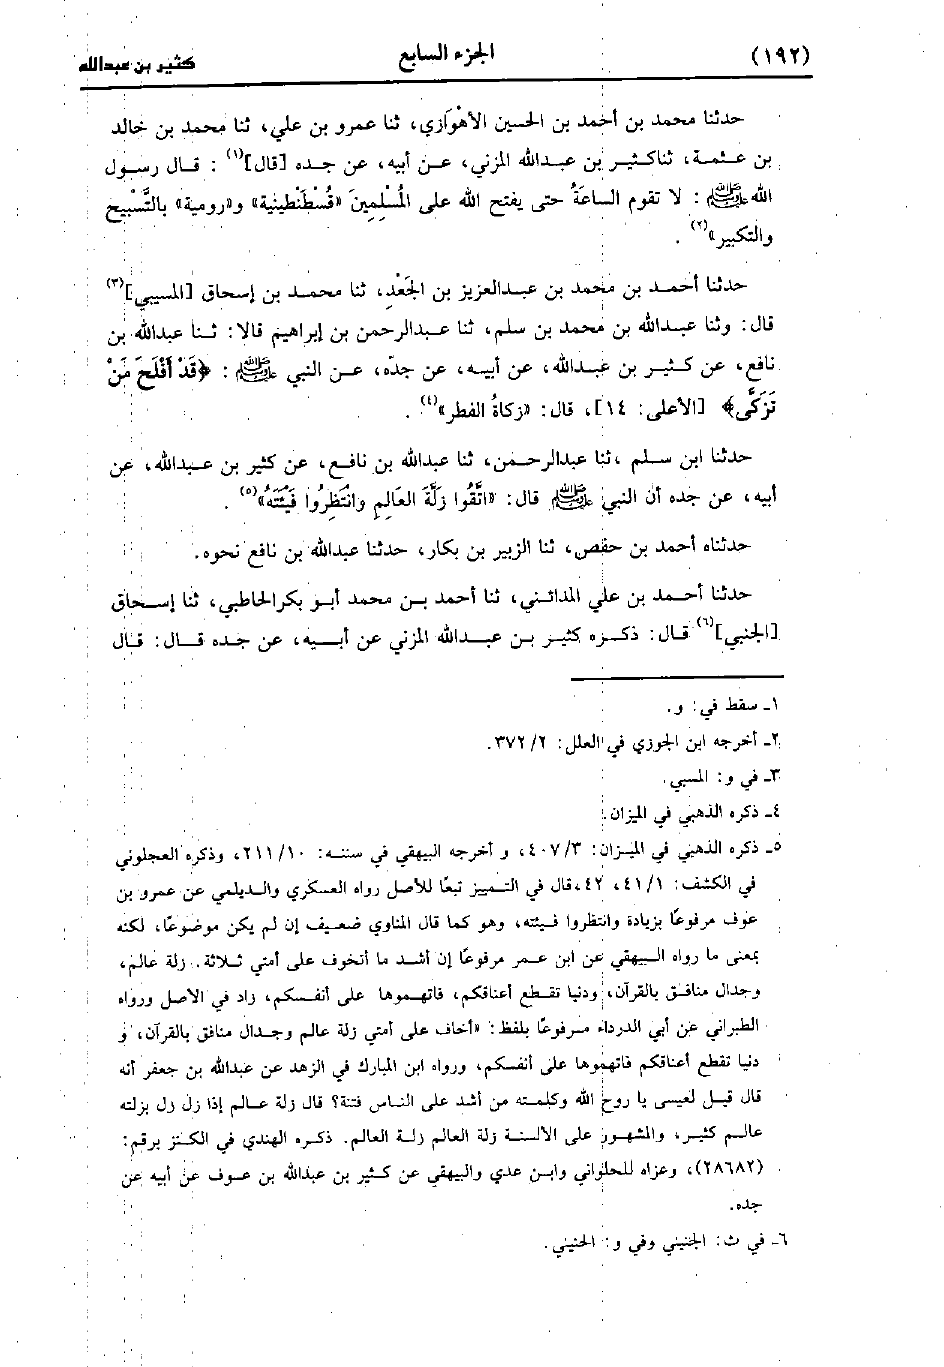 (١٩٢) الجزء السابع كثير بن عبدالله
حدثنا محمد بن أحمد بن الحسين الأهْوَازي، ثنا عمرو بن علي، ثنا محمد بن خالد
بن عـثـمـة، ثناكـثـيـر بن عـبـدالله المزني، عـن أبيه، عن جـده [قال](١) : قـال رسـول
الله ﷺ : لا تقوم الساعَةُ حتى يفتح الله على المُسْلِمِينَ «قُسْطَنْطِينية» و«رومية» بالتَّسْبِيح
والتكبير»(٢) .
حدثنا أحمـد بن محمد بن عبـدالعزيز بن الجَعْدِ، ثنا محمـد بن إسحاق [المسيبي](٣)
قال: وثنا عبـدالله بن محمد بن سلم، ثنا عـبدالرحمن بن إبراهيم قالا: ثـنا عبدالله بن
نافع، عن كـثـيـر بن عبـدالله، عن أبيـه، عن جدّه، عـن النبي ﷺ : ﴿قَدْ أَفْلَحَ مَنْ
تَزَكَّى﴾ [الأعلى: ١٤]، قال: «زكاةُ الفطر»(٤) .
حدثنا ابن سـلم ،ثنا عبدالرحـمن، ثنا عبدالله بن نافـع، عن كثير بن عـبدالله، عن
أبيه، عن جده أن النبي ﷺ قال: «اتَّقُوا زلَّةَ العَالِمِ وانْتَظِرُوا فَيْئَتَهُ»(٥) .
حدثناه أحمد بن حفص، ثنا الزبير بن بكار، حدثنا عبدالله بن نافع نحوه.
حدثنا أحـمـد بن علي المدائـني، ثنا أحمد بـن محمد أبـو بكرالحاطبي، ثنا إسـحاق
[الجنبي](٦) قـال: ذكـره كثيـر بـن عبـدالله المزني عن أبـيـه، عن جده قـال: قـال
١ـ سقط في: و.
٢ـ أخرجه ابن الجوزي في العلل: ٢/ ٣٧٢.
٣ـ في و: المسبي.
٤ـ ذكره الذهبي في الميزان.
٥ـ ذكره الذهبي في الميـزان: ٣/ ٤٠٧، و أخرجه البيهقي في سننـه: ١٠/ ٢١١، وذكره العجلوني
في الكشف: ١/ ٤١، ٤٢،قال في التـمييز تبعًا للأصل رواه العسكري والـديلمي عن عمرو بن
عوف مرفوعًا بزيادة وانتظروا فـيئته، وهو كما قال المناوي ضعـيف إن لم يكن موضوعًا، لكنه
بمعنى ما رواه الـبيهقي عن ابن عـمر مرفوعًا إن أشـد ما أتخوف على أمتي ثـلاثة. زلة عالم،
وجدال منافـق بالقرآن، ودنيا تقـطع أعناقكم، فاتهـموها على أنفـسكم، زاد في الأصل ورواه
الطبراني عن أبي الدرداء مـرفوعًا بلفظ: «أخاف على أمتي زلة عالم وجـدال منافق بالقرآن، و
دنيا تقطع أعناقكم فاتهموها على أنفسكم، ورواه ابن المبارك في الزهد عن عبدالله بن جعفر أنه
قال قيـل لعيسى يا روح الله وكلمته من أشد على النـاس فتنة؟ قال زلة عـالم إذا زل زل بزلته
عالـم كثيـر، والمشهور على الألسنـة زلة العالم زلـة العالم. ذكـره الهندي في الكنز برقم:
(٢٨٦٨٢)، وعزاه للحلواني وابـن عدي والبيهقي عن كـثير بن عبدالله بن عـوف عن أبيه عن
جده.
٦ـ في ث: الجنيني وفي و: الحنيني.